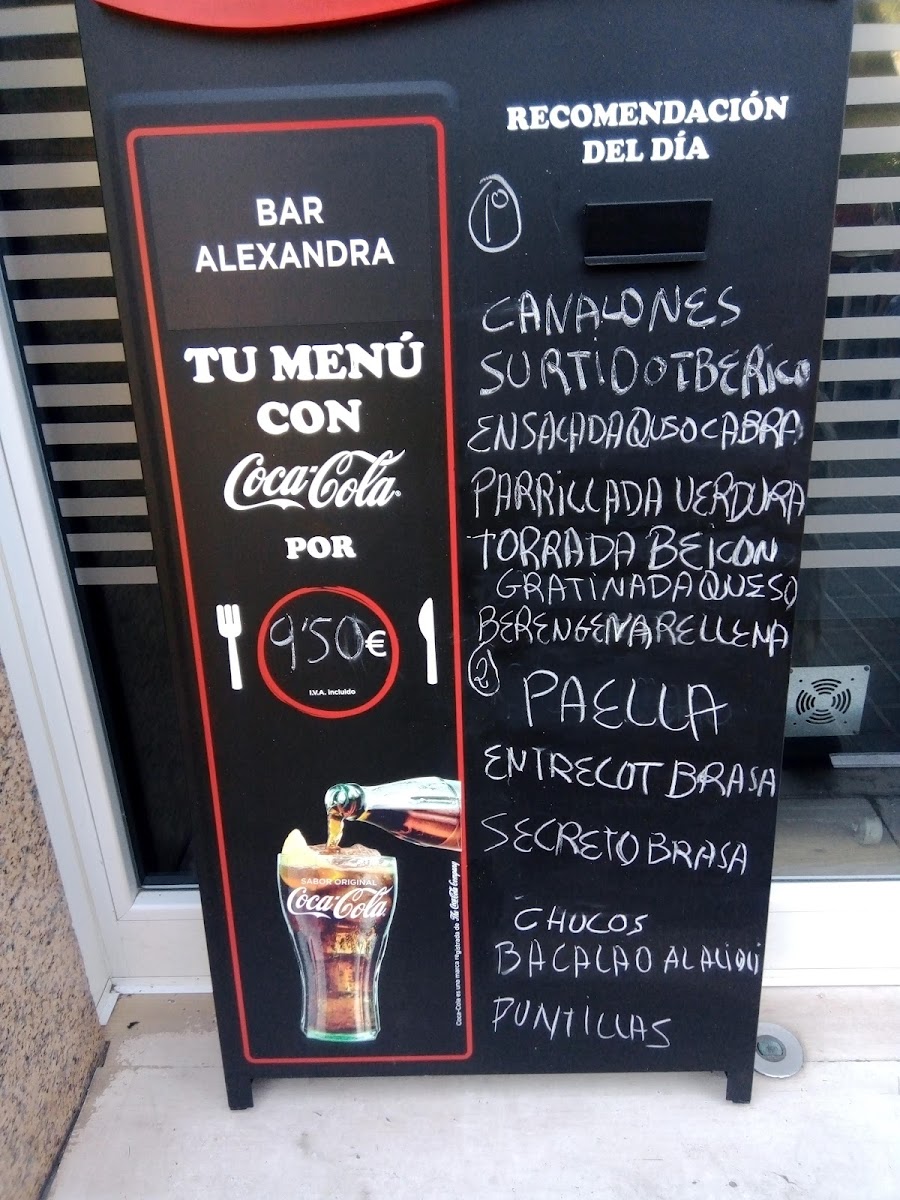 BAR
ALEXANDRA
TU MENÚ
CON
Coca-Cola
POR
9'50€
I.V.A. incluido
SABOR ORIGINAL
Coca-Cola
Coca-Cola es una marca registrada de The Coca-Cola Company
RECOMENDACIÓN
DEL DÍA
1º
CANALONES
SURTIDO IBERICO
ENSALADA QUSO CABRA
PARRILLADA VERDURA
TORRADA BEICON
GRATINADA QUESO
BERENGENA RELLENA
2
PAELLA
ENTRECOT BRASA
SECRETO BRASA
CHUCOS
BACALAO AL ALIOLI
PUNTILLAS